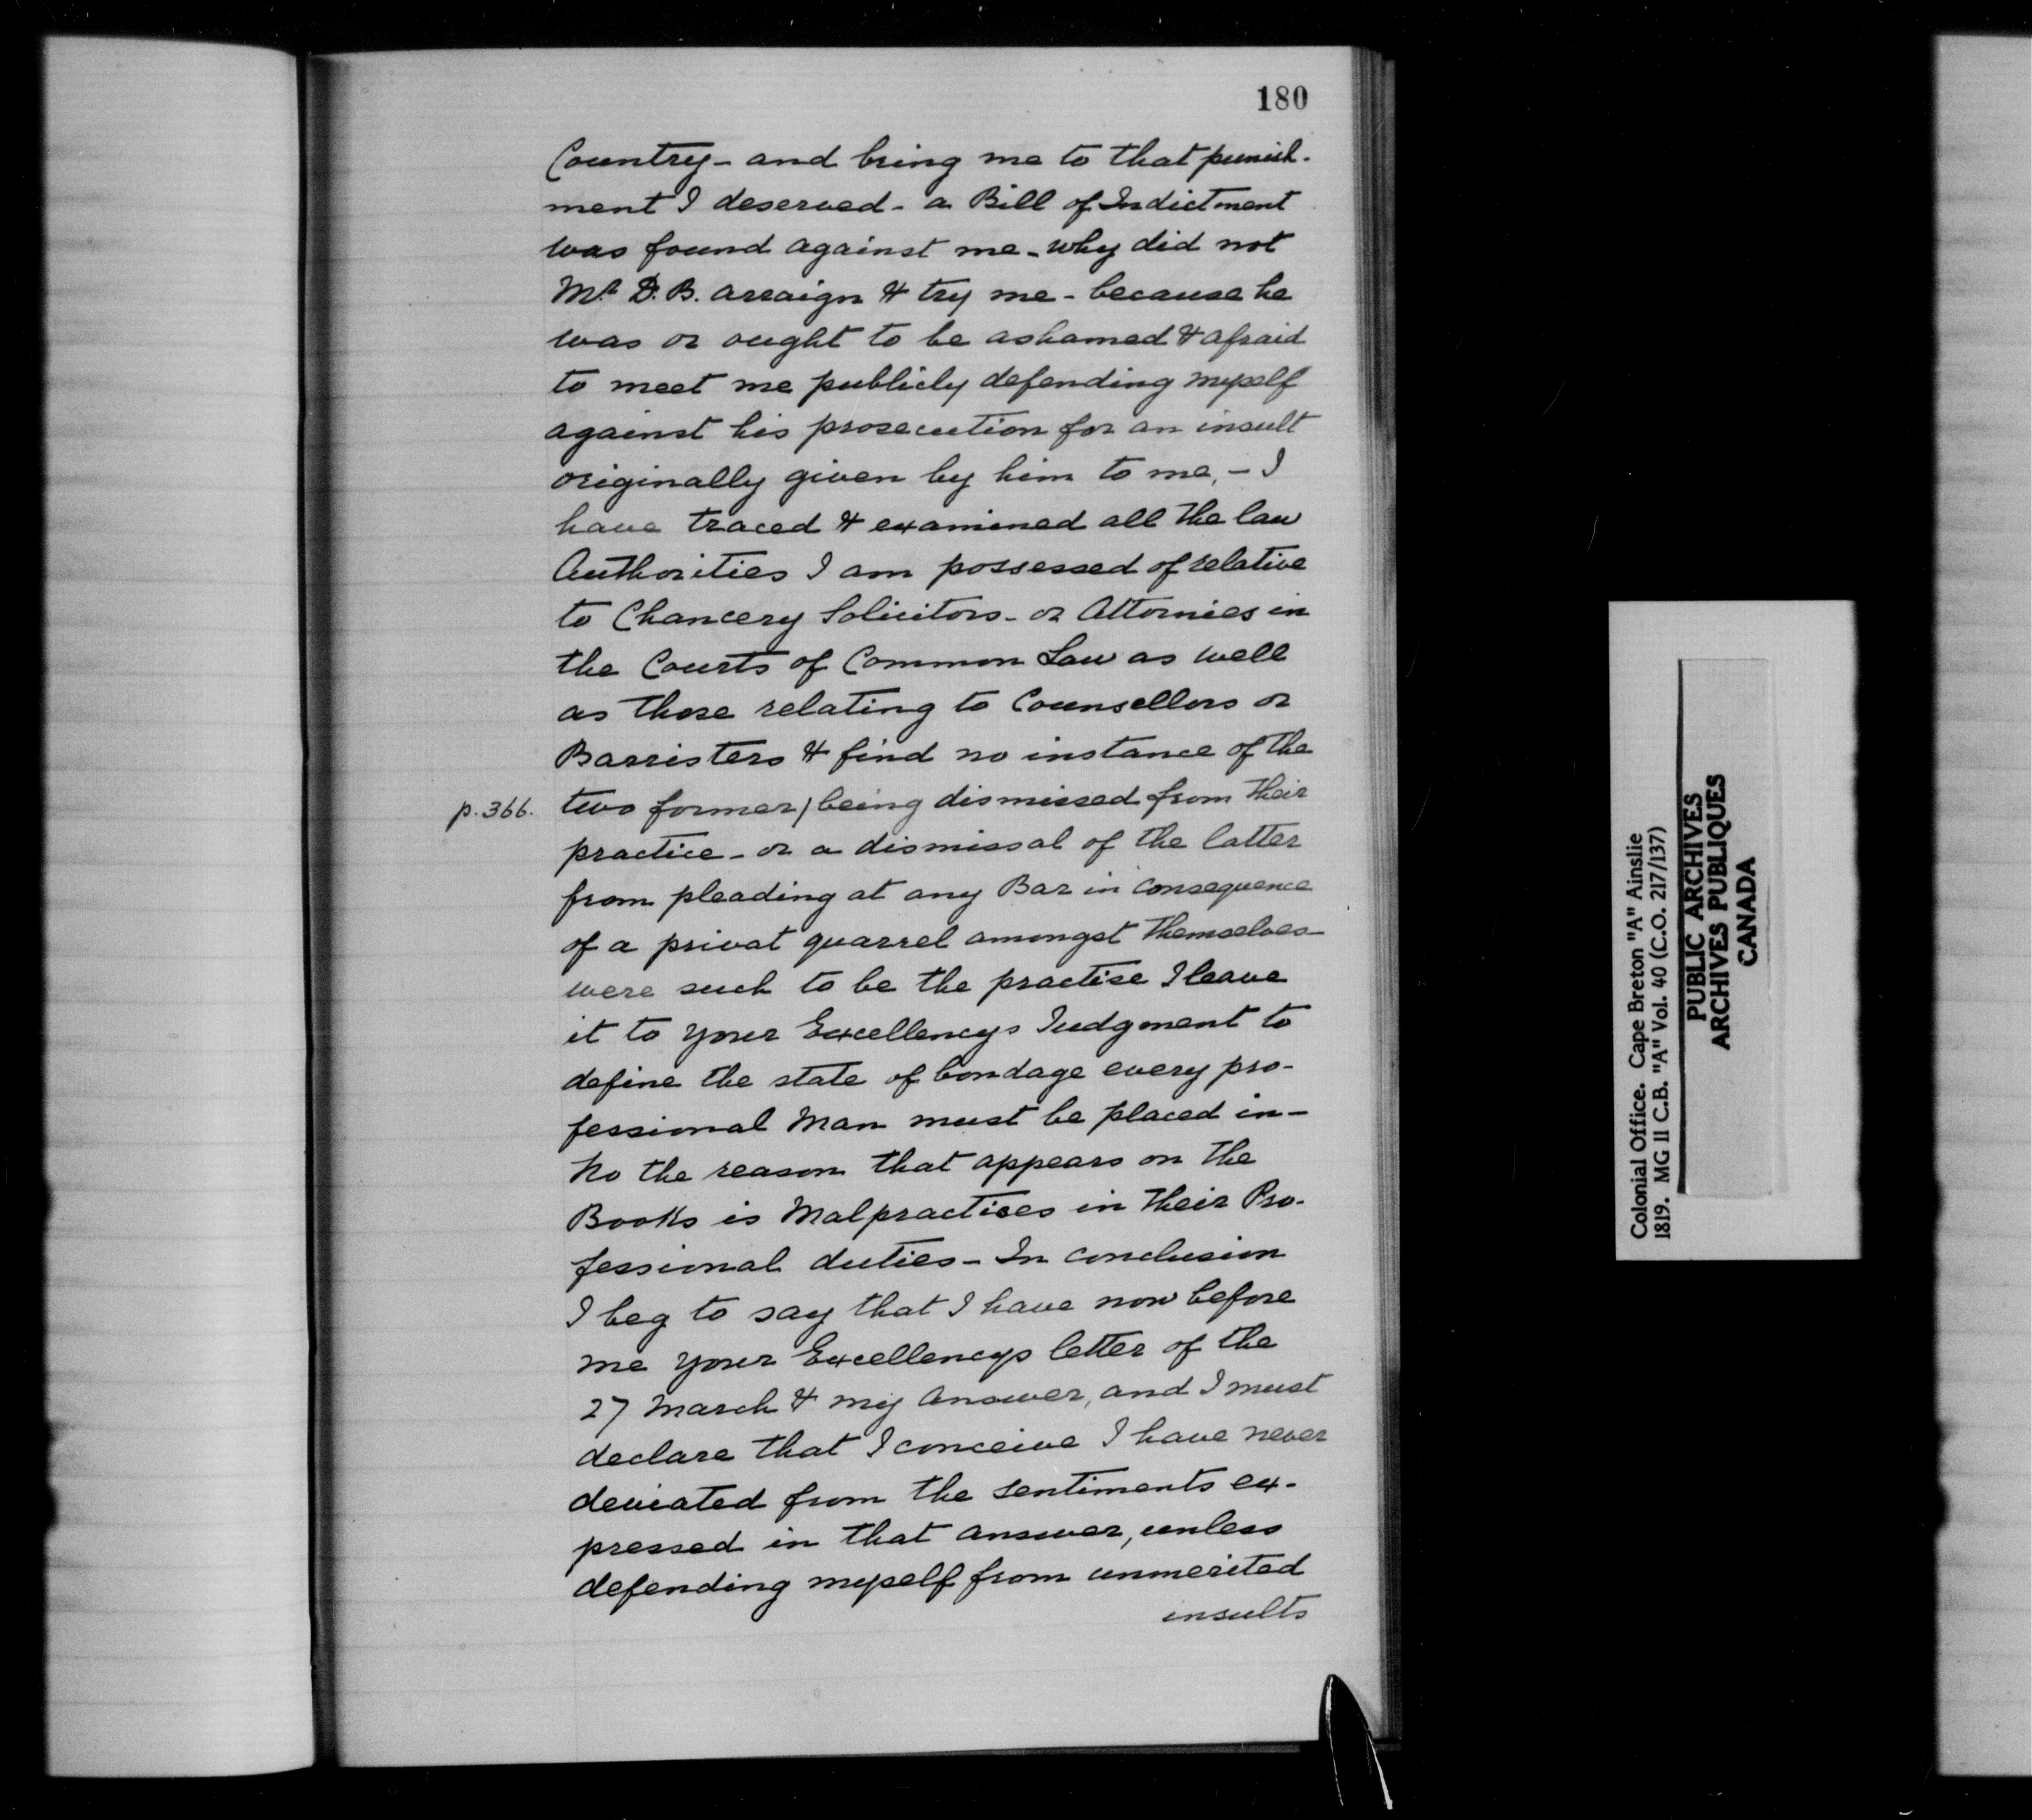 180
Country - and bring me to that punish-
ment I deserved - a Bill of Indictment
was found against me - why did not
Mr. D. B. arraign & try me - because he
was or ought to be ashamed & afraid
to meet me publicly defending myself
against his prosecution for an insult
originally given by him to me, - I
have traced & examined all the law
Authorities I am possessed of relative
to Chancery Solicitors - or Attornies in
the Courts of Common Law as well
as those relating to Counsellors or
Barristers & find no instance of the
p. 366. two former / being dismissed from their
practice - or a dismissal of the latter
from pleading at any Bar in consequence
of a privat quarrel amongst themselves -
were such to be the practise I leave
it to your Excellencys Judgment to
define the state of bondage every pro-
fessional Man must be placed in -
No the reason that appears on the
Books is Malpractices in their Pro-
fessional duties - In conclusion
I beg to say that I have now before
me your Excellencys letter of the
27 March & my Answer, and I must
declare that I conceive I have never
deviated from the sentiments ex-
pressed in that answer, unless
defending myself from unmerited
insults
Colonial Office. Cape Breton "A" Ainslie
1819. MG 11 C.B. "A" Vol. 40 (C.O. 217/137)
PUBLIC ARCHIVES
ARCHIVES PUBLIQUES
CANADA